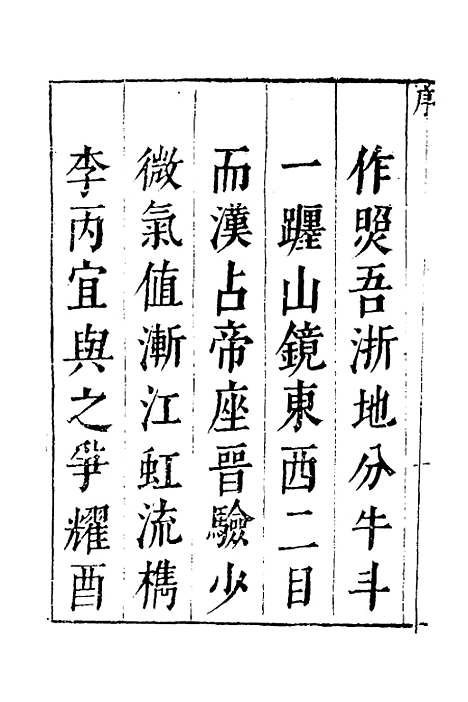 序
作煚吾浙地分牛斗
一躔山鏡東西二目
而漢占帝座晉驗少
微氣值漸江虹流檇
李丙宜與之爭耀酉